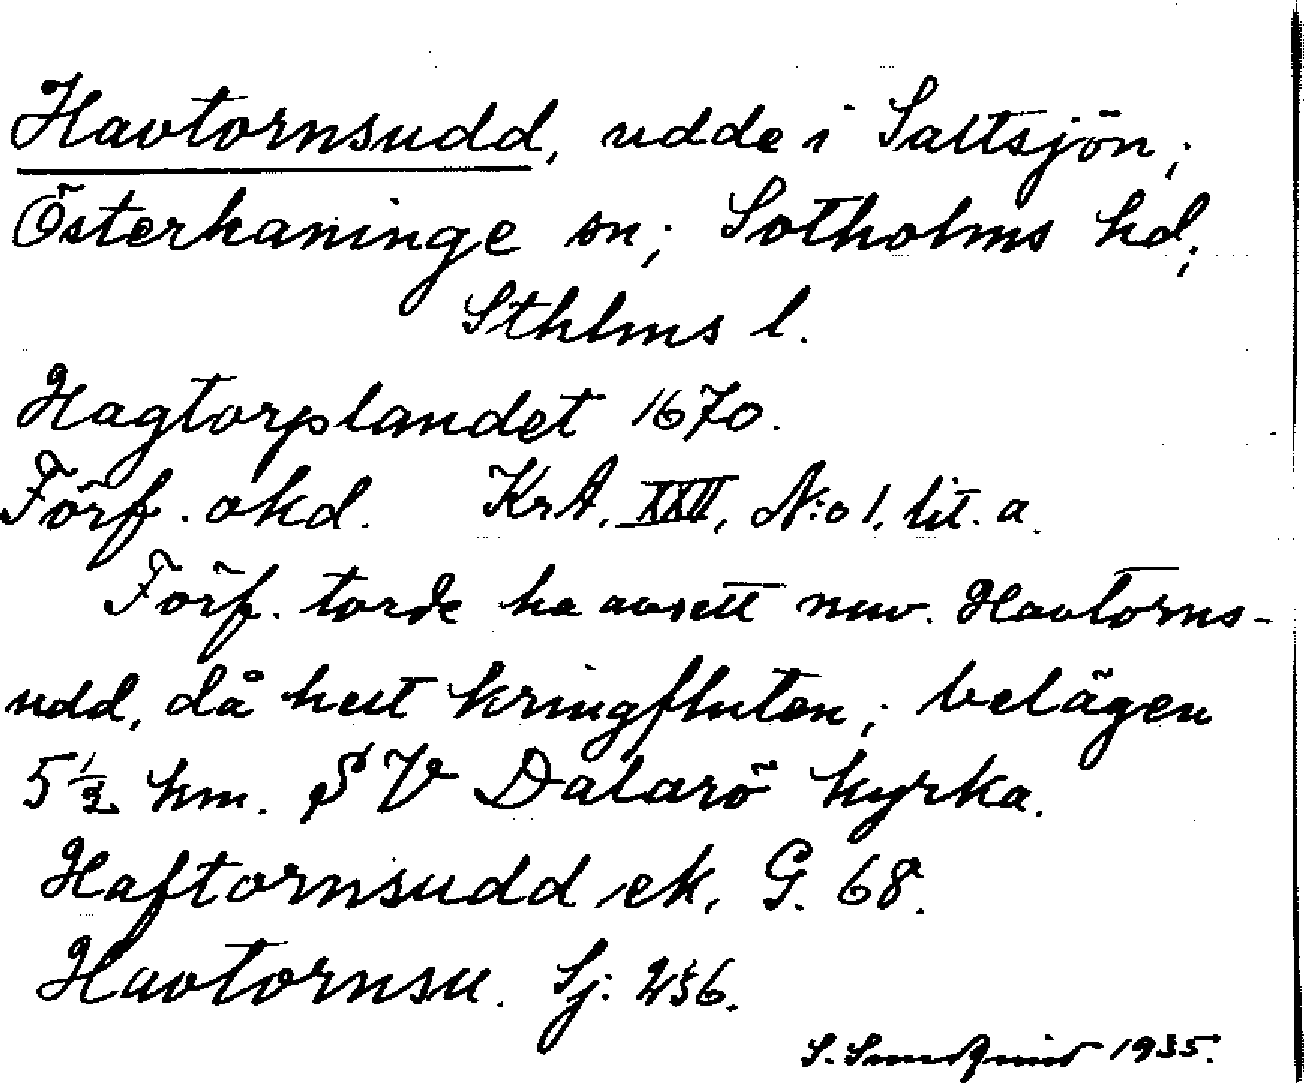 Havtornsudd, udde i Saltsjön;
Österhaninge sn; Sotholms hd;
Sthlms l.
Hagtorplandet 1670.
Förf. okd. KrA, XXII, N:o 1, lit. a.
Förf. torde ha avsett nuv. Havtorns-
udd, då helt kringfluten; belägen
5 1/2 km. SV Dalarö kyrka.
Haftornsudd ek. G. 68.
Havtornsu. Sj: 236.
S. 1935.